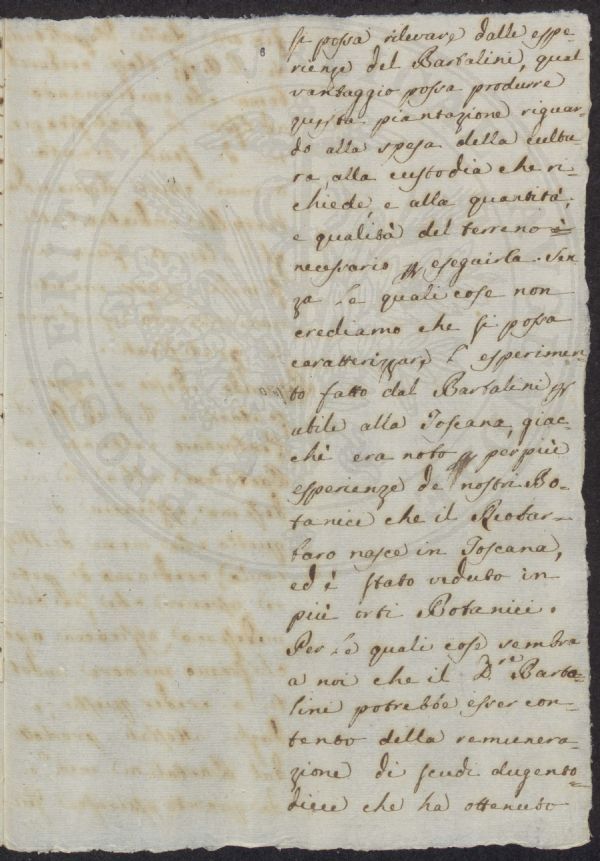 6
si possa rilevare dalle espe=
rienze del Bartalini, qual
vantaggio possa produrre
questa piantazione riguar=
do alla spesa della cultu=
ra, alla custodia che ri=
chiede, e alla quantità,
e qualità del terreno è
necessario eseguirla. Sen
za le quali cose non
crediamo che si possa
caratterizzare l'esperimen=
to fatto dal Bartalini
utile alla Toscana, giac=
chè era noto per più
esperienze de' nostri Bo=
tanici che il Reobar=
baro nasce in Toscana,
ed è stato veduto in
più orti Botanici.
Per le quali cose sembra
a noi che il D.re Barta=
lini potrebbe esser con=
tento della remunera=
zione di scudi dugento
dieci che ha ottenuto